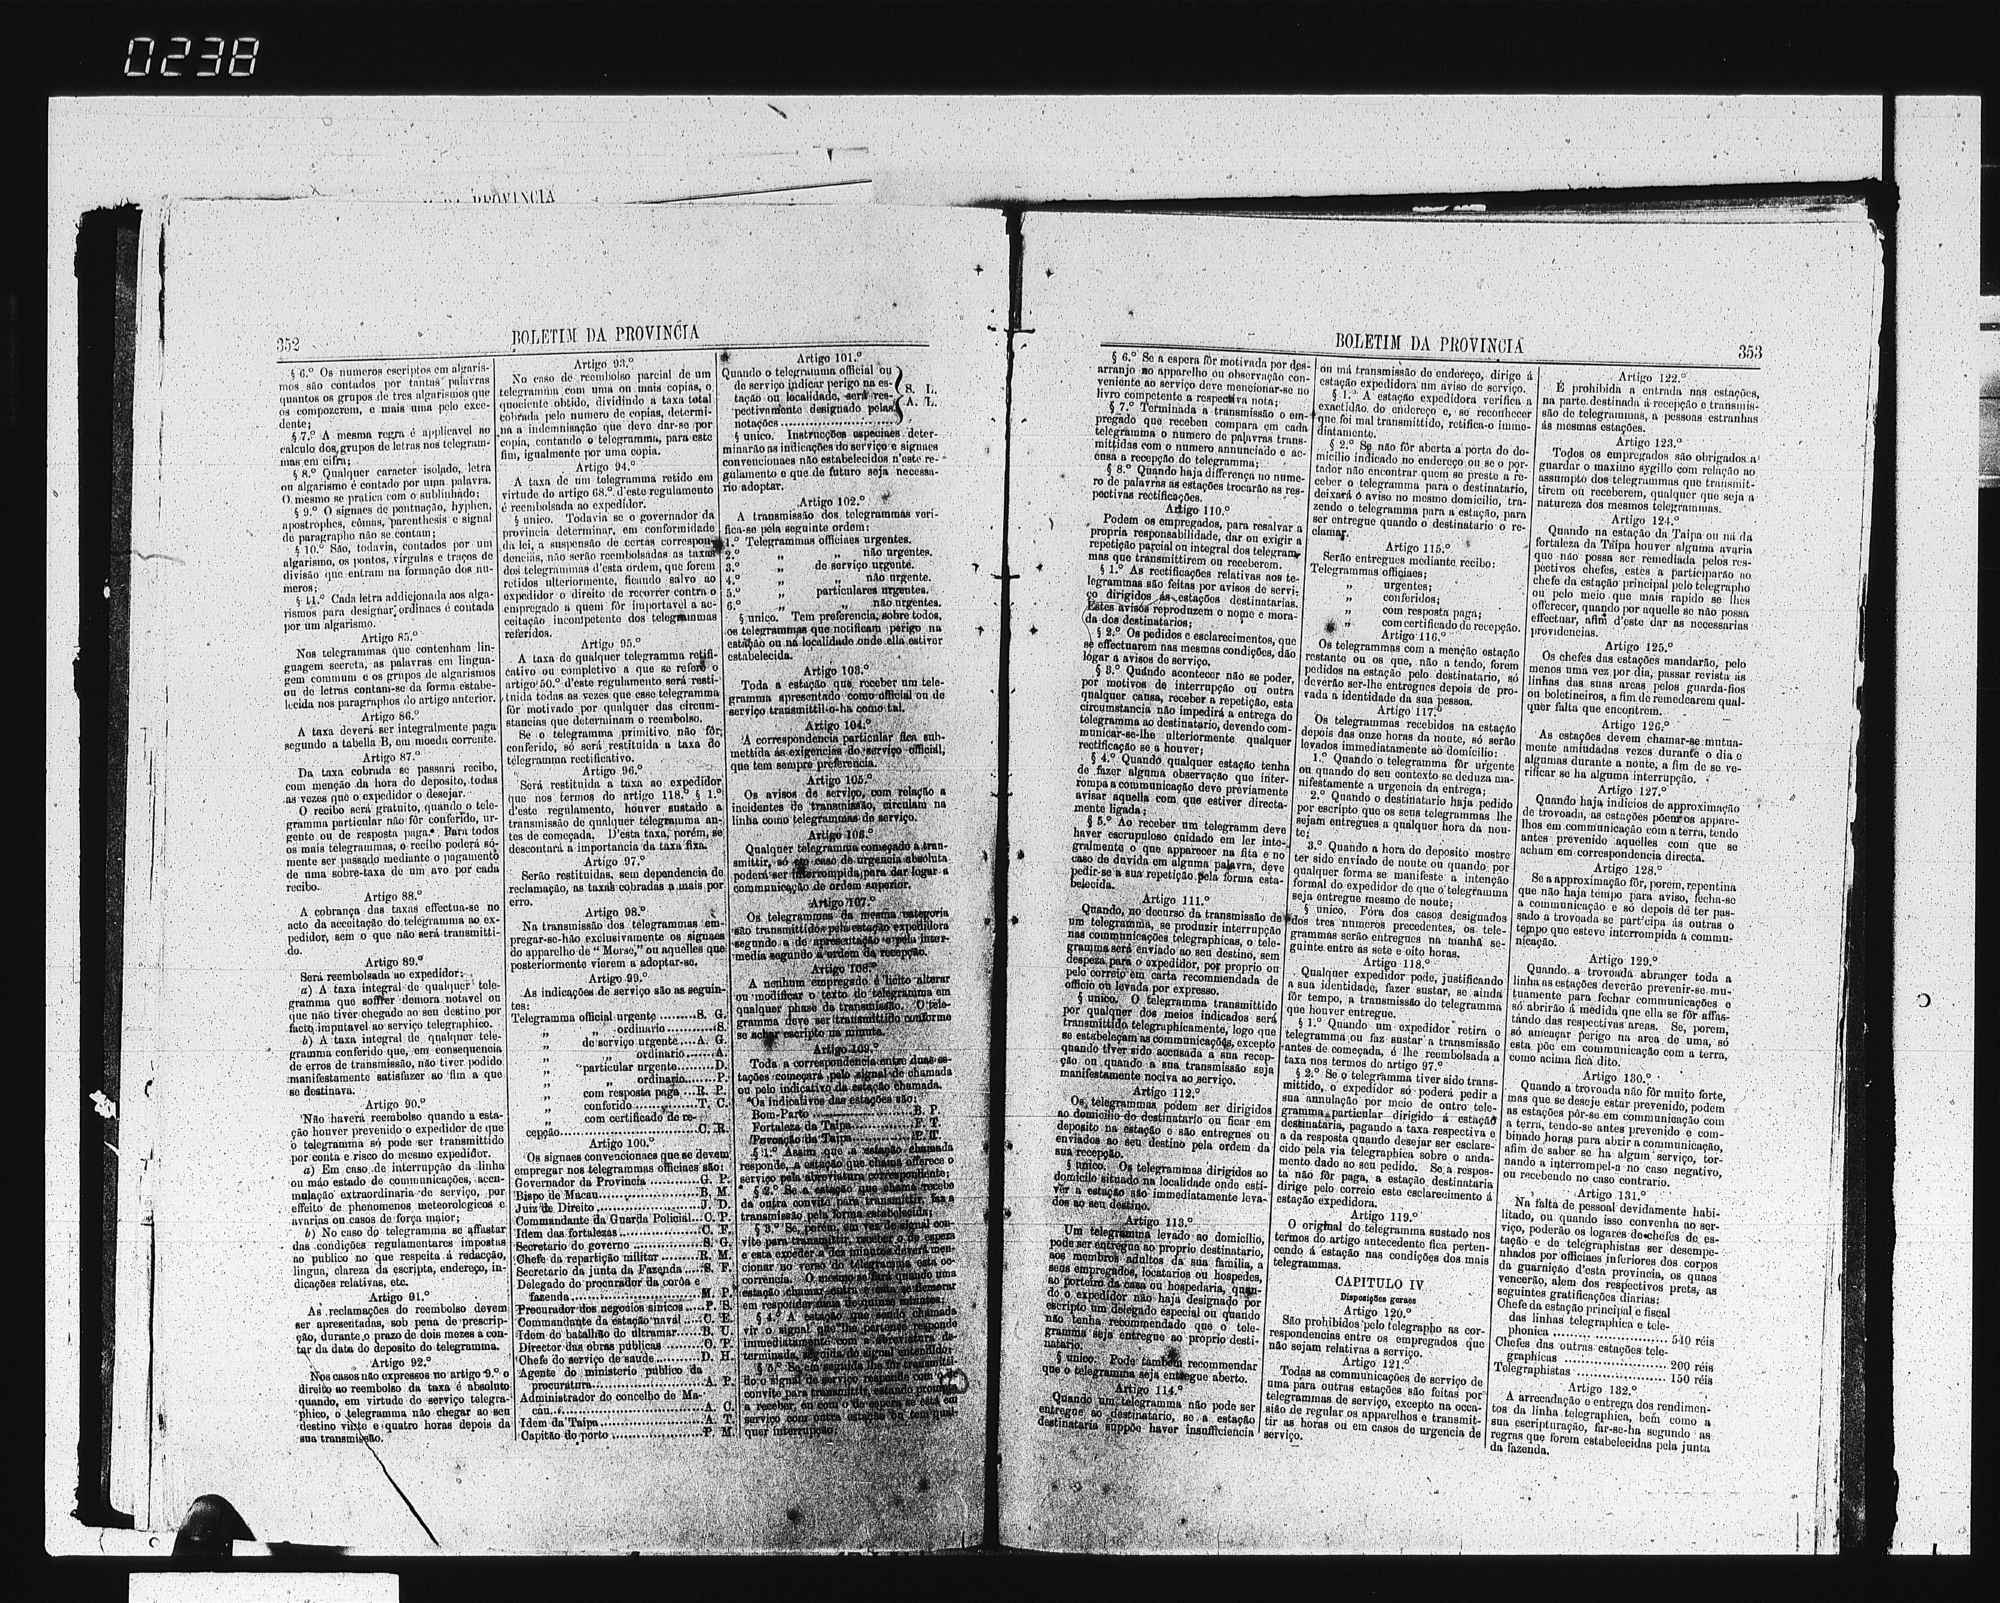 0238
DA PROVINCIA
352
BOLETIM DA PROVINCIA
§ 6.º Os numeros escriptos em algaris-
mos são contados por tantas palavras
quantos os grupos de tres algarismos que
os compozerem, e mais uma pelo exce-
dente;
§ 7.º A mesma regra é applicavel ao
calculo dos grupos de letras nos telegram-
mas em cifra;
§ 8.º Qualquer caracter isolado, letra
ou algarismo é contado por uma palavra.
O mesmo se pratica com o sublinhado;
§ 9.º O signaes de pontuação, hyphen,
apostrophes, cômas, parenthesis e signal
de paragrapho não se contam;
§ 10.º São, todavia, contados por um
algarismo, os pontos, virgulas e traços de
divisão que entram na formação dos nu-
meros;
§ 11.º Cada letra addicionada aos alga-
rismos para designar ordinaes é contada
por um algarismo.
Artigo 85.º
Nos telegrammas que contenham lin-
guagem secreta, as palavras em lingua-
gem commum e os grupos de algarismos
ou de letras contam-se da forma estabe-
lecida nos paragraphos do artigo anterior.
Artigo 86.º
A taxa deverá ser integralmente paga
segundo a tabella B, em moeda corrente.
Artigo 87.º
Da taxa cobrada se passará recibo,
com menção da hora do deposito, todas
as vezes que o expedidor o desejar.
O recibo será gratuito, quando o tele-
gramma particular não fôr conferido, ur-
gente ou de resposta paga. Para todos
os mais telegrammas, o recibo poderá só-
mente ser passado mediante o pagamento
de uma sobre-taxa de um avo por cada
recibo.
Artigo 88.º
A cobrança das taxas effectua-se no
acto da acceitação do telegramma ao ex-
pedidor, sem o que não será transmitti-
do.
Artigo 89.º
Será reembolsada ao expedidor:
a) A taxa integral de qualquer tele-
gramma que soffrer demora notavel ou
que não tiver chegado ao seu destino por
facto imputavel ao serviço telegraphico.
b) A taxa integral de qualquer tele-
gramma conferido que, em consequencia
de erros de transmissão, não tiver podido
manifestamente satisfazer ao fim a que
se destinava.
Artigo 90.º
Não haverá reembolso quando a esta-
ção houver prevenido o expedidor de que
o telegramma só pode ser transmittido
por conta e risco do mesmo expedidor.
a) Em caso de interrupção da linha
ou máo estado de communicações, accu-
mulação extraordinaria de serviço, por
effeito de phenomenos meteorologicos e
avarias ou casos de força maior;
b) No caso do telegramma se affastar
das condições regulamentares impostas
ao publico no que respeita á redacção,
lingua, clareza da escripta, endereço, in-
dicações relativas, etc.
Artigo 91.º
As reclamações do reembolso devem
ser apresentadas, sob pena de prescrip-
ção, durante o prazo de dois mezes a con-
tar da data do deposito do telegramma.
Artigo 92.º
Nos casos não expressos no artigo 9.º o
direito ao reembolso da taxa é absoluto
quando, em virtude do serviço telegra-
phico, o telegramma não chegar ao seu
destino vinte e quatro horas depois da
sua transmissão.
Artigo 93.º
No caso de reembolso parcial de um
telegramma com uma ou mais copias, o
quociente obtido, dividindo a taxa total
cobrada pelo numero de copias, determi-
na a indemnisação que deve dar-se por
copia, contando o telegramma, para este
fim, igualmente por uma copia.
Artigo 94.º
A taxa de um telegramma retido em
virtude do artigo 68.º d'este regulamento
é reembolsada ao expedidor.
§ unico. Todavia se o governador da
provincia determinar, em conformidade
da lei, a suspensão de certas correspon-
dencias, não serão reembolsadas as taxas
dos telegrammas d'esta ordem, que forem
retidos ulteriormente, ficando salvo ao
expedidor o direito de recorrer contra o
empregado a quem fôr importavel a ac-
ceitação incompetente dos telegrammas
referidos.
Artigo 95.º
A taxa de qualquer telegramma retifi-
cativo ou completivo a que se refere o
artigo 50.º d'este regulamento será resti-
tuida todas as vezes que esse telegramma
fôr motivado por qualquer das circum-
stancias que determinam o reembolso.
Se o telegramma primitivo não fôr
conferido, só será restituida a taxa do
telegramma rectificativo.
Artigo 96.º
Será restituida a taxa ao expedidor
que nos termos do artigo 118.º § 1.º
d'este regulamento, houver sustado a
transmissão de qualquer telegramma an-
tes de começada. D'esta taxa, porém, se
descontará a importancia da taxa fixa.
Artigo 97.º
Serão restituidas, sem dependencia de
reclamação, as taxas cobradas a mais por
erro.
Artigo 98.º
Na transmissão dos telegrammas em-
pregar-se-hão exclusivamente os signaes
do apparelho de "Morse," ou aquelles que
posteriormente vierem a adoptar-se.
Artigo 99.º
As indicações de serviço são as seguin-
tes:
Telegramma official urgente .........S. G.
„ „ ordinario............S.
„ de serviço urgente....A. G.
„ „ ordinario............A.
„ particular urgente.........D.
„ „ ordinario............P.
„ com resposta paga ...R. P.
„ conferido................T. C.
„ com certificado de re-
cepção...........................C. R.
Artigo 100.º
Os signaes convencionaes que se devem
empregar nos telegrammas officiaes são:
Governador da Provincia ............G. P.
Bispo de Macau........................B. M.
Juiz de Direito ........................J. D.
Commandante da Guarda Policial...C. P.
Idem das fortalezas...................C. F.
Secretario do governo ...............S. G.
Chefe da repartição militar .........R. M.
Secretario da junta da Fazenda ....S. F.
Delegado do procurador da corôa e
fazenda ..............................M. P.
Procurador dos negocios sinicos ....P. S.
Commandante da estação naval ....C. E.
Idem do batalhão do ultramar......B. U.
Director das obras publicas .........O. P.
Chefe do serviço de saude...........D. H.
Agente do ministerio publico da
procuratura..........................A. P.
Administrador do concelho de Ma-
cau....................................A. C.
Idem da Taipa ........................A. T.
Capitão do porto .....................P. M.
Artigo 101.º
Quando o telegramma official ou
de serviço indicar perigo na es-
tação ou localidade, será res-
pectivamente designado pelas
notações...........................
S. L.
A. L.
§ unico. Instrucções especiaes deter-
minarão as indicações do serviço e signaes
convencionaes não estabelecidos n'este re-
gulamento e que de futuro seja necessa-
rio adoptar.
Artigo 102.º
A transmissão dos telegrammas veri-
fica-se pela seguinte ordem:
1.º Telegrammas officiaes urgentes.
2.º „ „ não urgentes.
3.º „ de serviço urgente.
4.º „ „ não urgente.
5.º „ particulares urgentes.
6.º „ „ não urgentes.
§ unico. Tem preferencia, sobre todos,
os telegrammas que notificam perigo na
estação ou na localidade onde ella estiver
estabelecida.
Artigo 103.º
Toda a estação que receber um tele-
gramma apresentado como official ou de
serviço transmittil-o-ha como tal.
Artigo 104.º
A correspondencia particular fica sub-
mettida ás exigencias do serviço official,
que tem sempre preferencia.
Artigo 105.º
Os avisos de serviço, com relação a
incidentes de transmissão, circulam na
linha como telegrammas de serviço.
Artigo 106.º
Qualquer telegramma começado a tran-
smittir, só em caso de urgencia absoluta
poderá ser interrompida para dar logar a
communicação de ordem superior.
Artigo 107.º
Os telegrammas da mesma categoria
são transmittidos pela estação expedidora
segundo a de apresentação e pela inter-
media segundo a ordem da recepção.
Artigo 108.º
A nenhum empregado é licito alterar
ou modificar o texto do telegramma em
qualquer phase da transmissão. O tele-
gramma deve ser transmittido conforme
se achar escripto na minuta.
Artigo 109.º
Toda a correspondencia entre duas es-
tações começará pelo signal de chamada
ou pelo indicativo da estação chamada.
Os indicativos das estações são:
Bom-Parto ..........................B. P.
Fortaleza da Taipa................F. T.
Povoação da Taipa................P. T.
§ 1.º Assim que a estação chamada
responde, a estação que chama offerece o
serviço pela abreviatura correspondente;
§ 2.º Se a estação que chama recebe
da outra convite para transmittir, faz a
transmissão pela forma estabelecida;
§ 3.º Se, porém, em vez de signal con-
vite para transmittir, receber o de espera
e esta exceder a dez minutos deverá men-
cionar no verso do telegramma esta oc-
correncia. O mesmo se fará quando uma
estação chamar outra e esta se demorar
em responder mais de quinze minutos;
§ 4.º A estação que sendo chamada
vir o signal que lhe pertence responde
immediatamente com a abreviatura de-
terminada, seguida do signal entendido;
§ 5.º Se em seguida lhe fôr transmitti-
do o signal de serviço responde com o
convite para transmittir, estando prompta
a receber, ou com o de espera se está em
serviço com outra estação ou tem qual-
quer interrupção;
BOLETIM DA PROVINCIA
353
§ 6.º Se a espera fôr motivada por des-
arranjo no apparelho ou observação con-
veniente ao serviço deve mencionar-se no
livro competente a respectiva nota;
§ 7.º Terminada a transmissão o em-
pregado que recebeu compara em cada
telegramma o numero de palavras trans-
mittidas com o numero annunciado e ac-
cusa a recepção do telegramma;
§ 8.º Quando haja differença no nume-
ro de palavras as estações trocarão as res-
pectivas rectificações.
Artigo 110.º
Podem os empregados, para resalvar a
propria responsabilidade, dar ou exigir a
repetição parcial ou integral dos telegram-
mas que transmittirem ou receberem.
§ 1.º As rectificações relativas aos te-
legrammas são feitas por avisos de servi-
ço dirigidos ás estações destinatarias.
Estes avisos reproduzem o nome e mora-
da dos destinatarios;
§ 2.º Os pedidos e esclarecimentos, que
se effectuarem nas mesmas condições, dão
logar a avisos de serviço.
§ 3.º Quando acontecer não se poder,
por motivos de interrupção ou outra
qualquer causa, receber a repetição, esta
circumstancia não impedirá a entrega do
telegramma ao destinatario, devendo com-
municar-se-lhe ulteriormente qualquer
rectificação se a houver;
§ 4.º Quando qualquer estação tenha
de fazer alguma observação que inter-
rompa a communicação deve préviamente
avisar aquella com que estiver directa-
mente ligada;
§ 5.º Ao receber um telegramm deve
haver escrupuloso cuidado em ler inte-
gralmente o que apparecer na fita e no
caso de duvida em alguma palavra, deve
pedir-se a sua repetição pela forma esta-
belecida.
Artigo 111.º
Quando, no decurso da transmissão de
um telegramma, se produzir interrupção
nas communicações telegraphicas, o tele-
gramma será enviado ao seu destino, sem
despeza para o expedidor, por proprio ou
pelo correio em carta recommendada de
officio ou levada por expresso.
§ unico. O telegramma transmittido
por qualquer dos meios indicados será
transmittido telegraphicamente, logo que
se estabeleçam as communicações, excepto
quando tiver sido accusada a sua recep-
ção ou quando a sua transmissão seja
manifestamente nociva ao serviço.
Artigo 112.º
Os telegrammas podem ser dirigidos
ao domicilio do destinatario ou ficar em
deposito na estação e são entregues ou
enviados ao seu destino pela ordem da
sua recepção.
§ unico. Os telegrammas dirigidos ao
domicilio situado na localidade onde esti-
vér a estação são immediatamente leva-
dos ao seu destino.
Artigo 113.º
Um telegramma levado ao domicilio,
pode ser entregue ao proprio destinatario,
aos membros adultos da sua familia, a
seus empregados, locatarios ou hospedes,
ao porteiro da casa ou hospedaria, quan-
do o expedidor não haja designado por
escripto um delegado especial ou quando
não tenha recommendado que o tele-
gramma seja entregue ao proprio desti-
natario.
§ unico. Pode tambem recommendar
que o telegramma seja entregue aberto.
Artigo 114.º
Quando um telegramma não pode ser
entregue ao destinatario, se a estação
destinataria suppõe haver insufficiencia
ou má transmissão do endereço, dirige á
estação expedidora um aviso de serviço.
§ 1.º A estação expedidora verifica a
exactidão do endereço e, se reconhecer
que foi mal transmittido, retifica-o imme-
diatamente.
§ 2.º Se não fôr aberta a porta do do-
micilio indicado no endereço ou se o por-
tador não encontrar quem se preste a re-
ceber o telegramma para o destinatario,
deixará o aviso no mesmo domicilio, tra-
zendo o telegramma para a estação, para
ser entregue quando o destinatario o re-
clamar.
Artigo 115.º
Serão entregues mediante recibo:
Telegrammas officiaes;
„ urgentes;
„ conferidos;
„ com resposta paga;
„ com certificado de recepção.
Artigo 116.º
Os telegrammas com a menção estação
restante ou os que, não a tendo, forem
pedidos na estação pelo destinatario, só
deverão ser-lhe entregues depois de pro-
vada a identidade da sua pessoa.
Artigo 117.º
Os telegrammas recebidos na estação
depois das onze horas da noute, só serão
levados immediatamente ao domicilio:
1.º Quando o telegramma fôr urgente
ou quando do seu contexto se deduza ma-
nifestamente a urgencia da entrega;
2.º Quando o destinatario haja pedido
por escripto que os seus telegrammas lhe
sejam entregues a qualquer hora da nou-
te;
3.º Quando a hora do deposito mostre
ter sido enviado de noute ou quando por
qualquer forma se manifeste a intenção
formal do expedidor de que o telegramma
seja entregue mesmo de noute;
§ unico. Fóra dos casos designados
dos tres numeros precedentes, os tele-
grammas serão entregues na manhã se-
guinte entre as sete e oito horas.
Artigo 118.º
Qualquer expedidor pode, justificando
a sua identidade, fazer sustar, se ainda
fôr tempo, a transmissão do telegramma
que houver entregue.
§ 1.º Quando um expedidor retira o
telegramma ou faz sustar a transmissão
antes de começada, é lhe reembolsada a
taxa nos termos do artigo 97.º
§ 2.º Se o telegramma tiver sido trans-
mittido, o expedidor só poderá pedir a
sua annulação por meio de outro tele-
gramma particular dirigido á estação
destinataria, pagando a taxa respectiva e
a da resposta quando desejar ser esclare-
cido pela via telegraphica sobre o anda-
mento dado ao seu pedido. Se a respos-
ta não fôr paga, a estação destinataria
dirige pelo correio este esclarecimento á
estação expedidora.
Artigo 119.º
O original do telegramma sustado nos
termos do artigo antecedente fica perten-
cendo á estação nas condições dos mais
telegrammas.
CAPITULO IV
Disposições geraes
Artigo 120.º
São prohibidos pelo telegrapho as cor-
respondencias entre os empregados que
não sejam relativas a serviço.
Artigo 121.º
Todas as communicações de serviço de
uma para outras estações são feitas por
telegrammas de serviço, excepto na occa-
sião de regular os apparelhos e transmit-
tir as horas ou em casos de urgencia de
serviço.
Artigo 122.º
É prohibida a entrada nas estações,
na parte destinada á recepção e transmis-
são de telegrammas, a pessoas estranhas
ás mesmas estações.
Artigo 123.º
Todos os empregados são obrigados a
guardar o maximo sygillo com relação ao
assumpto dos telegrammas que transmit-
tirem ou receberem, qualquer que seja a
natureza dos mesmos telegrammas.
Artigo 124.º
Quando na estação da Taipa ou na da
fortaleza da Taipa houver alguma avaria
que não possa ser remediada pelos res-
pectivos chefes, estes a participarão ao
chefe da estação principal pelo telegrapho
ou pelo meio que mais rapido se lhes
offerecer, quando por aquelle se não possa
effectuar, afim d'este dar as necessarias
providencias.
Artigo 125.º
Os chefes das estações mandarão, pelo
menos uma vez por dia, passar revista ás
linhas das suas areas pelos guarda-fios
ou boletineiros, a fim de remedearem qual-
quer falta que encontrem.
Artigo 126.º
As estações devem chamar-se mutua-
mente amiudadas vezes durante o dia e
algumas durante a noute, a fim de se ve-
rificar se ha alguma interrupção.
Artigo 127.º
Quando haja indicios de approximação
de trovoada, as estações põem os appare-
lhos em communicação com a terra, tendo
antes prevenido aquelles com que se
acham em correspondencia directa.
Artigo 128.º
Se a approximação fôr, porem, repentina
que não haja tempo para aviso, fecha-se
a communicação e só depois de ter pas-
sado a trovoada se participa ás outras o
tempo que esteve interrompida a commu-
nicação.
Artigo 129.º
Quando a trovoada abranger toda a
linha as estações deverão prevenir-se mu-
tuamente para fechar communicações e
só abrirão á medida que ella se fôr affas-
tando das respectivas areas. Se, porem,
só ameaçar perigo na area de uma, só
esta põe em communicação com a terra,
como acima fica dito.
Artigo 130.º
Quando a trovoada não fôr muito forte,
mas que se deseje estar prevenido, podem
as estações pôr-se em communicação com
a terra, tendo-se antes prevenido e com-
binado horas para abrir a communicação,
afim de saber se ha algum serviço, tor-
nando a interrompel-a no caso negativo,
ou recebendo no caso contrario.
Artigo 131.º
Na falta de pessoal devidamente habi-
litado, ou quando isso convenha ao ser-
viço, poderão os logares de chefes de es-
tação e de telegraphistas ser desempe-
nhados por officiaes inferiores dos corpos
da guarnição d'esta provincia, os quaes
vencerão, alem dos respectivos prets, as
seguintes gratificações diarias:
Chefe da estação principal e fiscal
das linhas telegraphica e tele-
phonica .............................. 540 réis
Chefes das outras estações tele-
graphicas ........................... 200 réis
Telegraphistas ........................ 150 réis
Artigo 132.º
A arrecadação e entrega dos rendimen-
tos da linha telegraphica, bem como a
sua escripturação, far-se-ha segundo as
regras que forem estabelecidas pela junta
da fazenda.